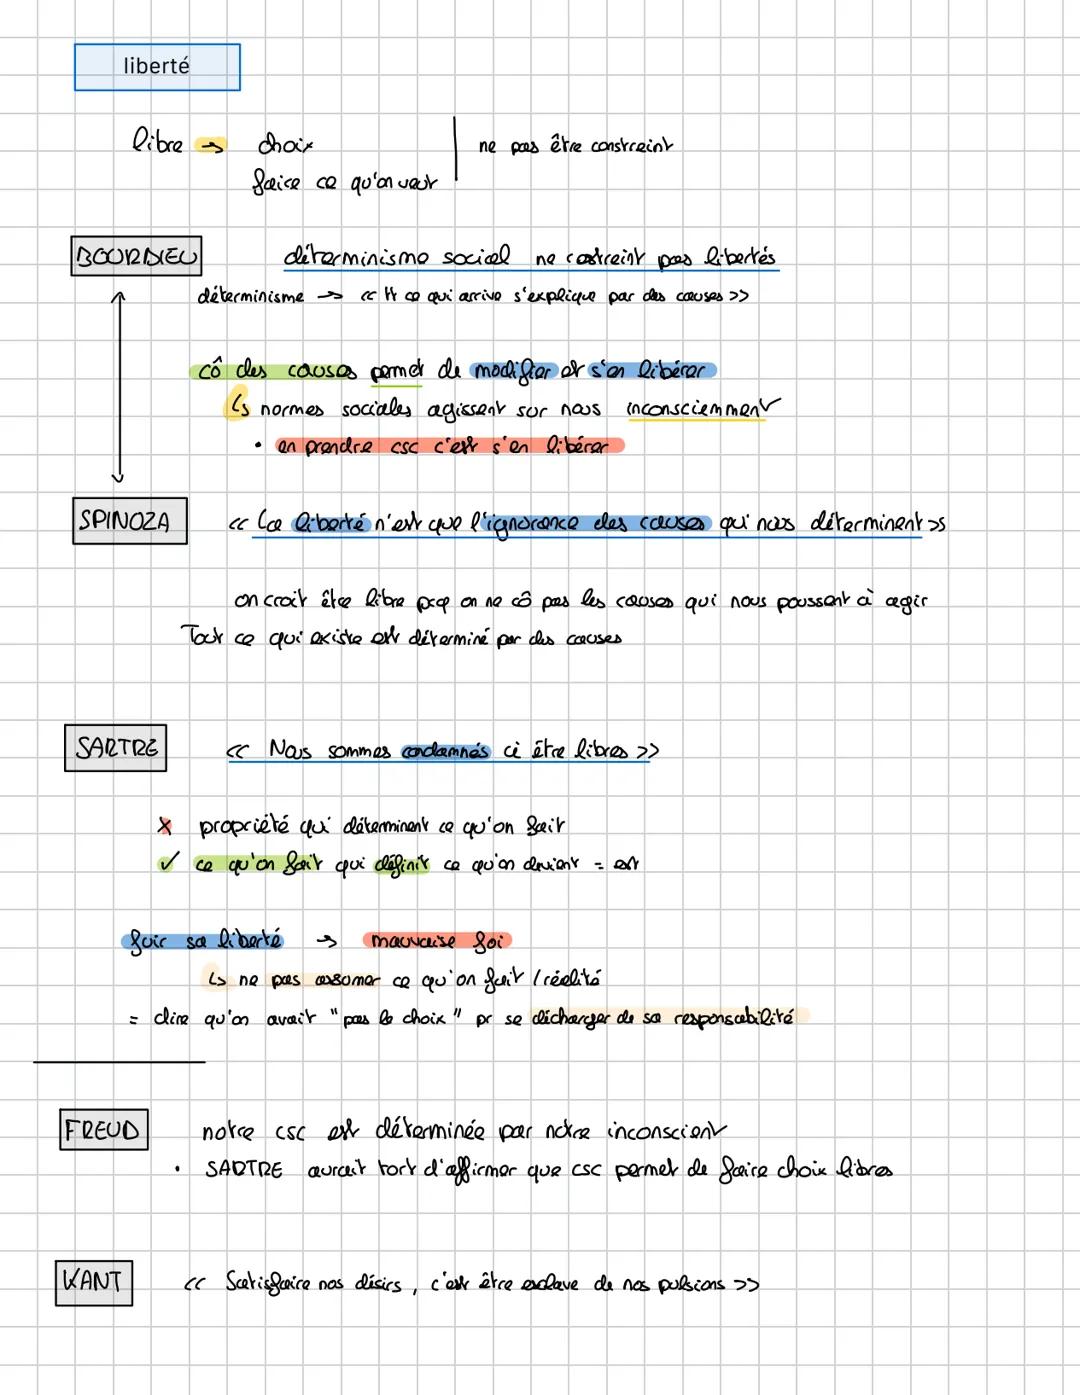 liberté
libre → choix | ne pas être constraint
faire ce qu'on veut
BOURDIEU déterminisme social ne costreint pas libertés
déterminisme → << tt ce qui arrive s'explique par des causes >>
cô des causes permet de modifier et s'en libérer
↳ normes sociales agissent sur nous inconsciemment
• en prendre csc c'est s'en libérer
SPINOZA << La liberté n'est que l'ignorance des causes qui nous déterminent >>
on croit être libre pcq on ne cô pas les causes qui nous poussent à agir
Tout ce qui existe est déterminé par des causes
SARTRE << Nous sommes condamnés à être libres >>
x propriété qui déterminent ce qu'on fait
✓ ce qu'on fait qui définit ce qu'on devient = est
fuir sa liberté → mauvaise foi
↳ ne pas assumer ce qu'on fuit / réalité
= dire qu'on avait "pas le choix" pr se décharger de sa responsabilité
FREUD notre csc est déterminée par notre inconscient
• SARTRE aurait tort d'affirmer que csc permet de faire choix libres
KANT << Satisfaire nos désirs, c'est être esclave de nos pulsions >>